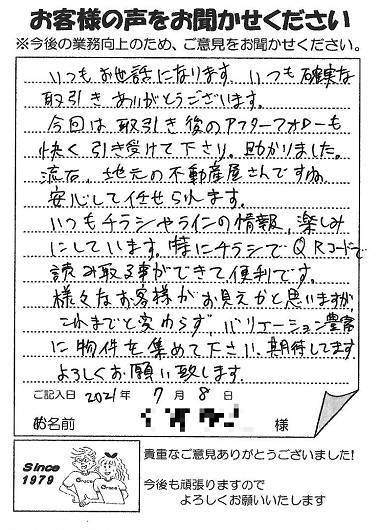 お客様の声をお聞かせください
※今後の業務向上のため、ご意見をお聞かせください。
いつもお世話になります。いつも確実な
取引きありがとうございます。
今回は取引き後のアフターフォローも
快く引き受けて下さり。助かりました。
流石、地元の不動産屋さんですね
安心して任せられます。
いつもチラシやラインの情報、楽しみ
にしています。特にチラシでQRコードで
読み取る事ができて便利です。
様々なお客様がお見えかと思いますが、
これまでと変わらず、バリエーション豊富
に物件を集めて下さい、期待してます
よろしくお願い致します。
ご記入日 2021年 7月 8日
お名前 様
Since
1979
Grace
Grace
貴重なご意見ありがとうございました!
今後も頑張りますので
よろしくお願いいたします